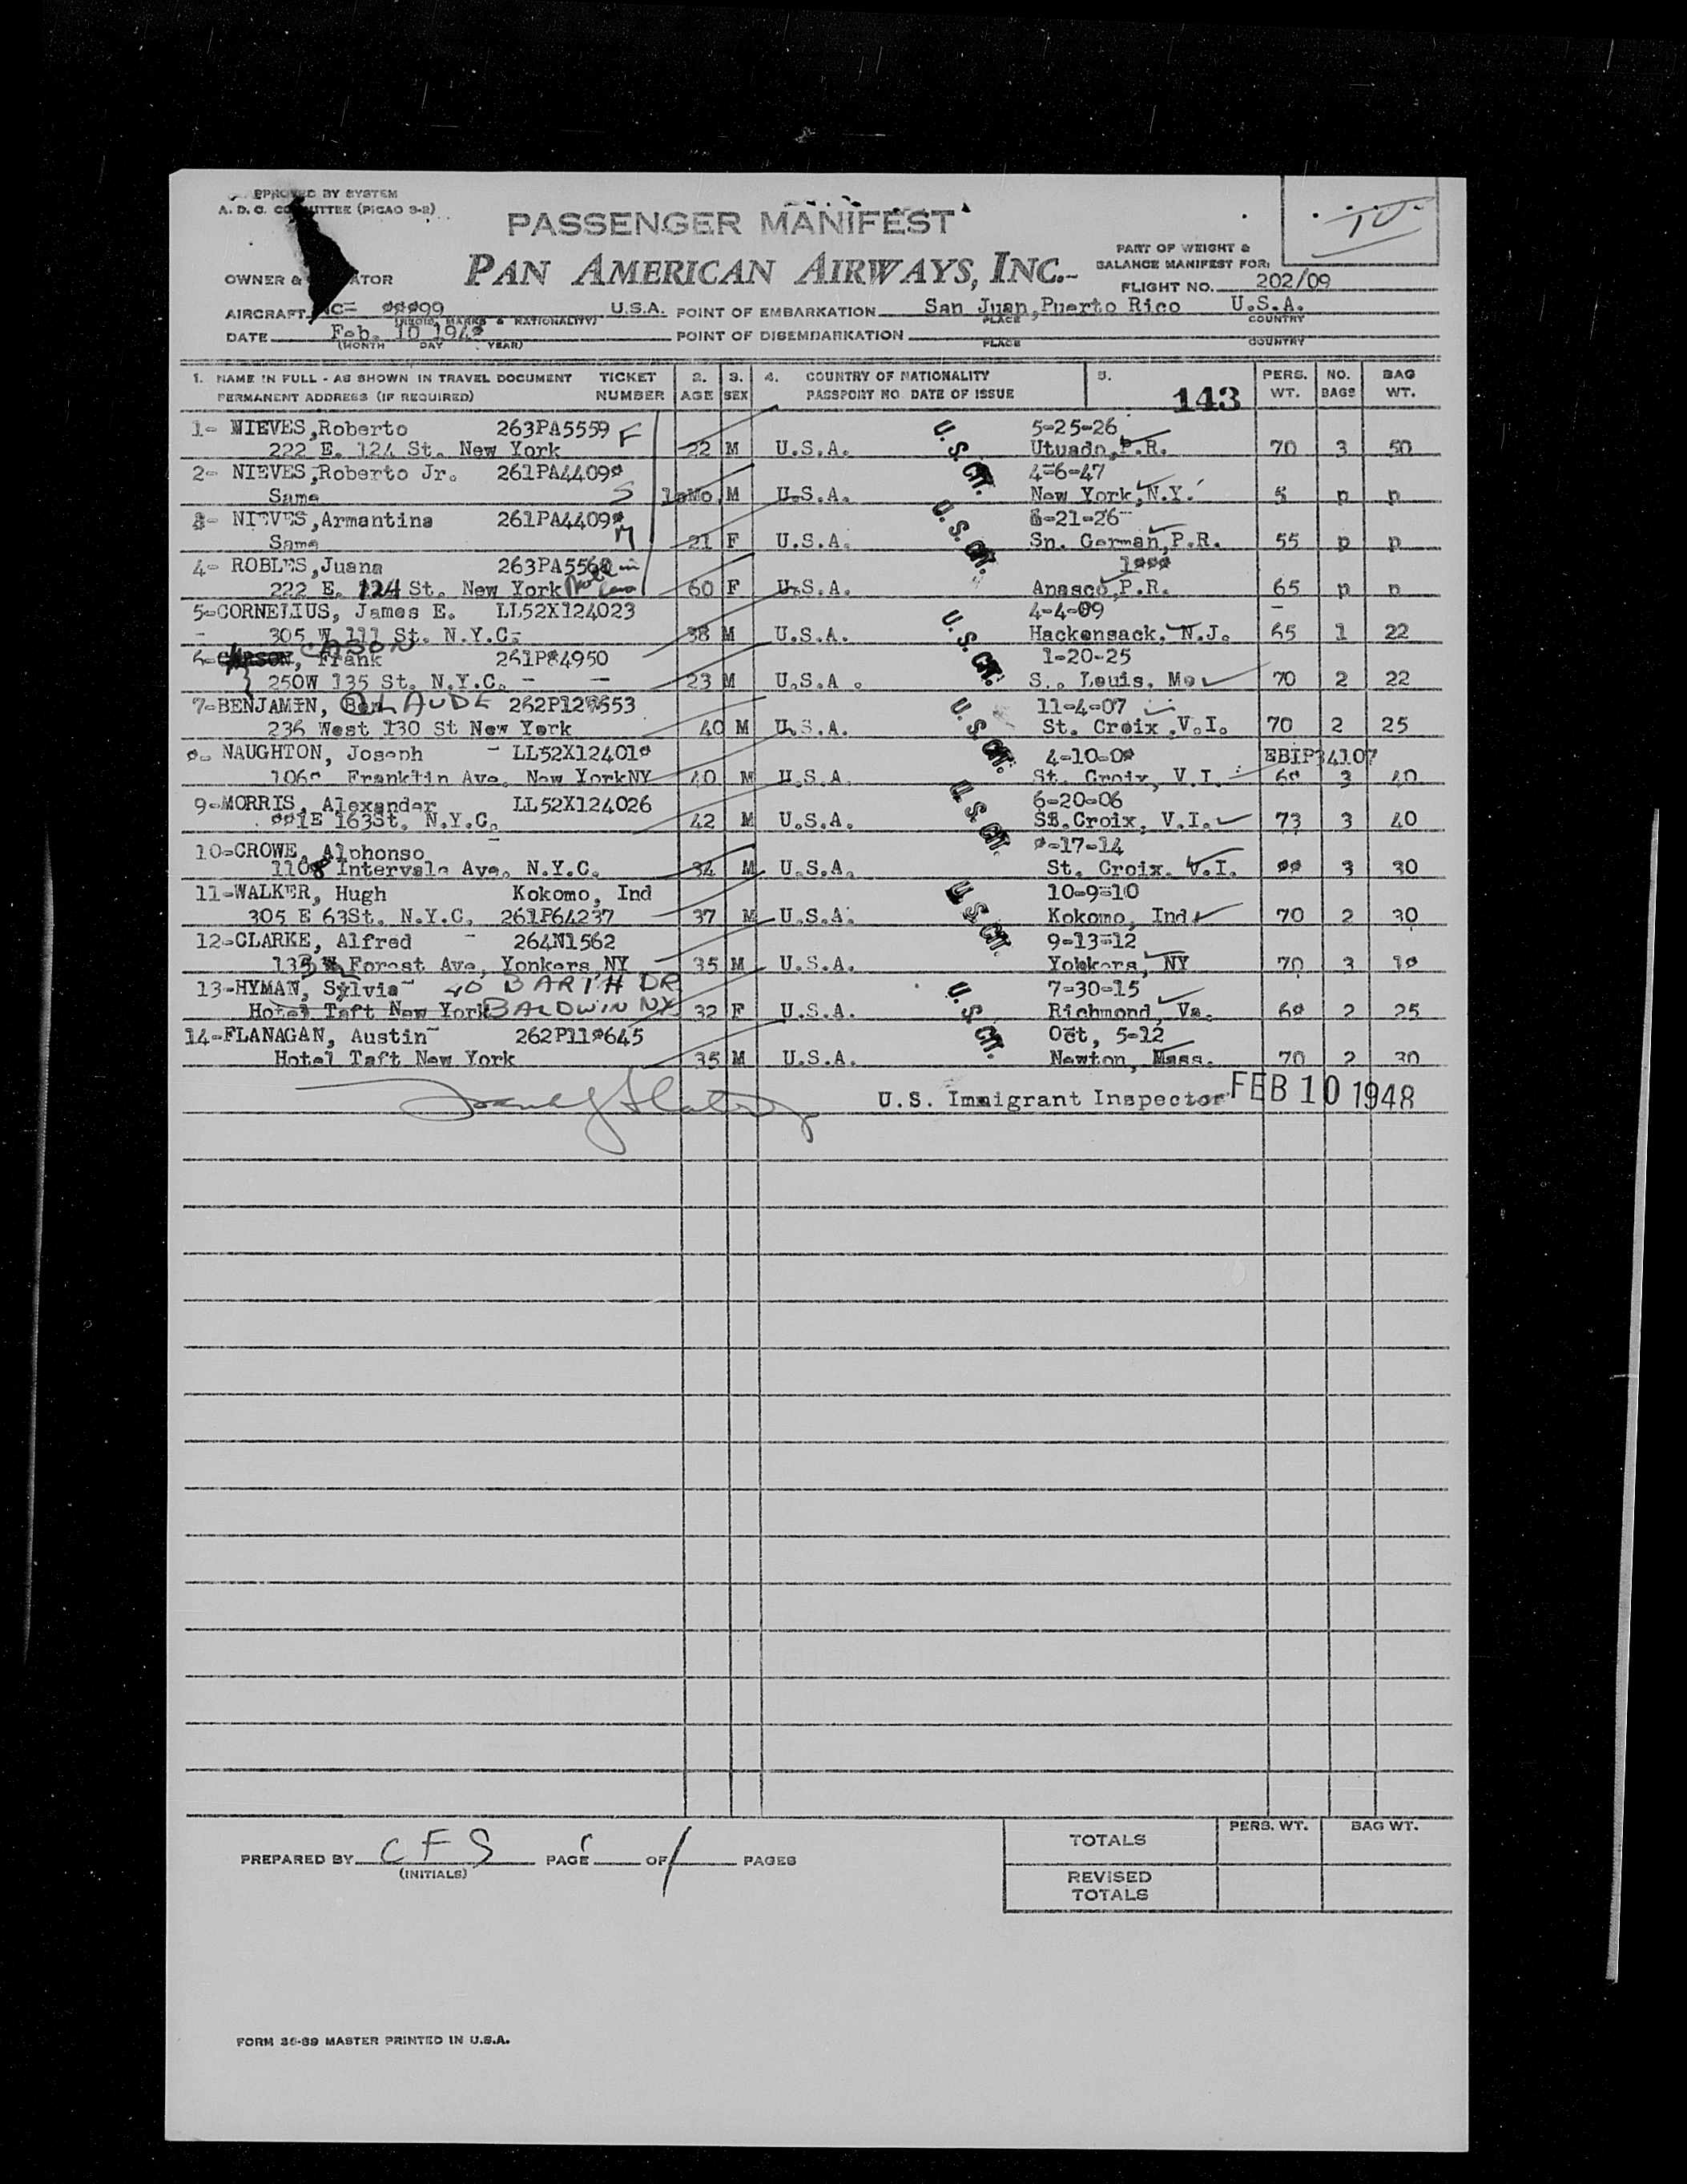 APPROVED BY SYSTEM
A. D. C. COMMITTEE (PICAO 9-2)
PASSENGER MANIFEST
10
PART OF WEIGHT &
BALANCE MANIFEST FOR:
OWNER & OPERATOR
PAN AMERICAN AIRWAYS, INC.
FLIGHT NO. 202/09
AIRCRAFT NC- 88899 U.S.A. POINT OF EMBARKATION San Juan,Puerto Rico U.S.A.
(REGIS. MARKS & NATIONALITY) PLACE COUNTRY
DATE Feb. 10 1948 POINT OF DISEMBARKATION
(MONTH DAY YEAR) PLACE COUNTRY
1. NAME IN FULL - AS SHOWN IN TRAVEL DOCUMENT TICKET 2. 3. 4. COUNTRY OF NATIONALITY 5. PERS. NO. BAG
PERMANENT ADDRESS (IF REQUIRED) NUMBER AGE SEX PASSPORT NO. DATE OF ISSUE 143 WT. BAGS WT.
1- NIEVES,Roberto 263PA5559 F 5-25-26
222 E. 124 St. New York 22 M U.S.A. U. S. CIT. Utuado,P.R. 70 3 50
2- NIEVES,Roberto Jr. 261PA44098 4-6-47
Same S 10Mo M U.S.A. New York,N.Y. 5 p p
3- NIEVES,Armantina 261PA4409 -21-26
Same M 21 F U.S.A. U. S. CIT. Sn. German,P.R. 55 p p
4- ROBLES,Juana 263PA5560 1888
222 E. 124 St. New York 60 F U.S.A. Anasco,P.R. 65 p p
5-CORNELIUS, James E. LL52X124023 4-4-09
305 W 111 St. N.Y.C. 38 M U.S.A. U. S. CIT. Hackensack, N.J. 65 1 22
CASON
6-CARSON, Frank 261P84950 1-20-25
250W 135 St. N.Y.C. 23 M U.S.A. S.. Louis. Mo 70 2 22
7-BENJAMIN, CLAUDE 262P12 653 11-4-07
236 West 130 St New York 40 M U.S.A. U. S. CIT. St. Croix.V.I. 70 2 25
8- NAUGHTON, Joseph LL52X124018 4-10-08 EBIP34107
Franklin Ave. New YorkNY 40 M U.S.A. St. Croix, V.I. 68 3 40
9-MORRIS, Alexander LL52X124026 6-20-06
881E 163St. N.Y.C. 42 M U.S.A. U. S. CIT. St.Croix, V.I. 73 3 40
10-CROWE, Alphonso 8-17-14
1108 Intervale Ave. N.Y.C. 34 M U.S.A. St. Croix. V.I. 88 3 30
11-WALKER, Hugh Kokomo, Ind 10-9-10
305 E 63St. N.Y.C. 261P64237 37 M U.S.A. U. S. CIT. Kokomo, Ind 70 2 30
12-CLARKE, Alfred 264N1562 9-13-12
Forest Ave, Yonkers NY 35 M U.S.A. Yonkers, NY 70 3 18
13-HYMAN, Sylvia 40 BARTH DR 7-30-15
Hotel Taft New York BALDWIN NY 32 F U.S.A. U. S. CIT. Richmond, Va. 68 2 25
14-FLANAGAN, Austin 262P118645 Oct, 5-12
Hotel Taft New York 35 M U.S.A. Newton, Mass. 70 2 30
U.S. Immigrant Inspector FEB 10 1948
PERS. WT. BAG WT.
TOTALS
PREPARED BY CFS PAGE 1 OF 1 PAGES
(INITIALS)
REVISED
TOTALS
FORM 36-89 MASTER PRINTED IN U.S.A.